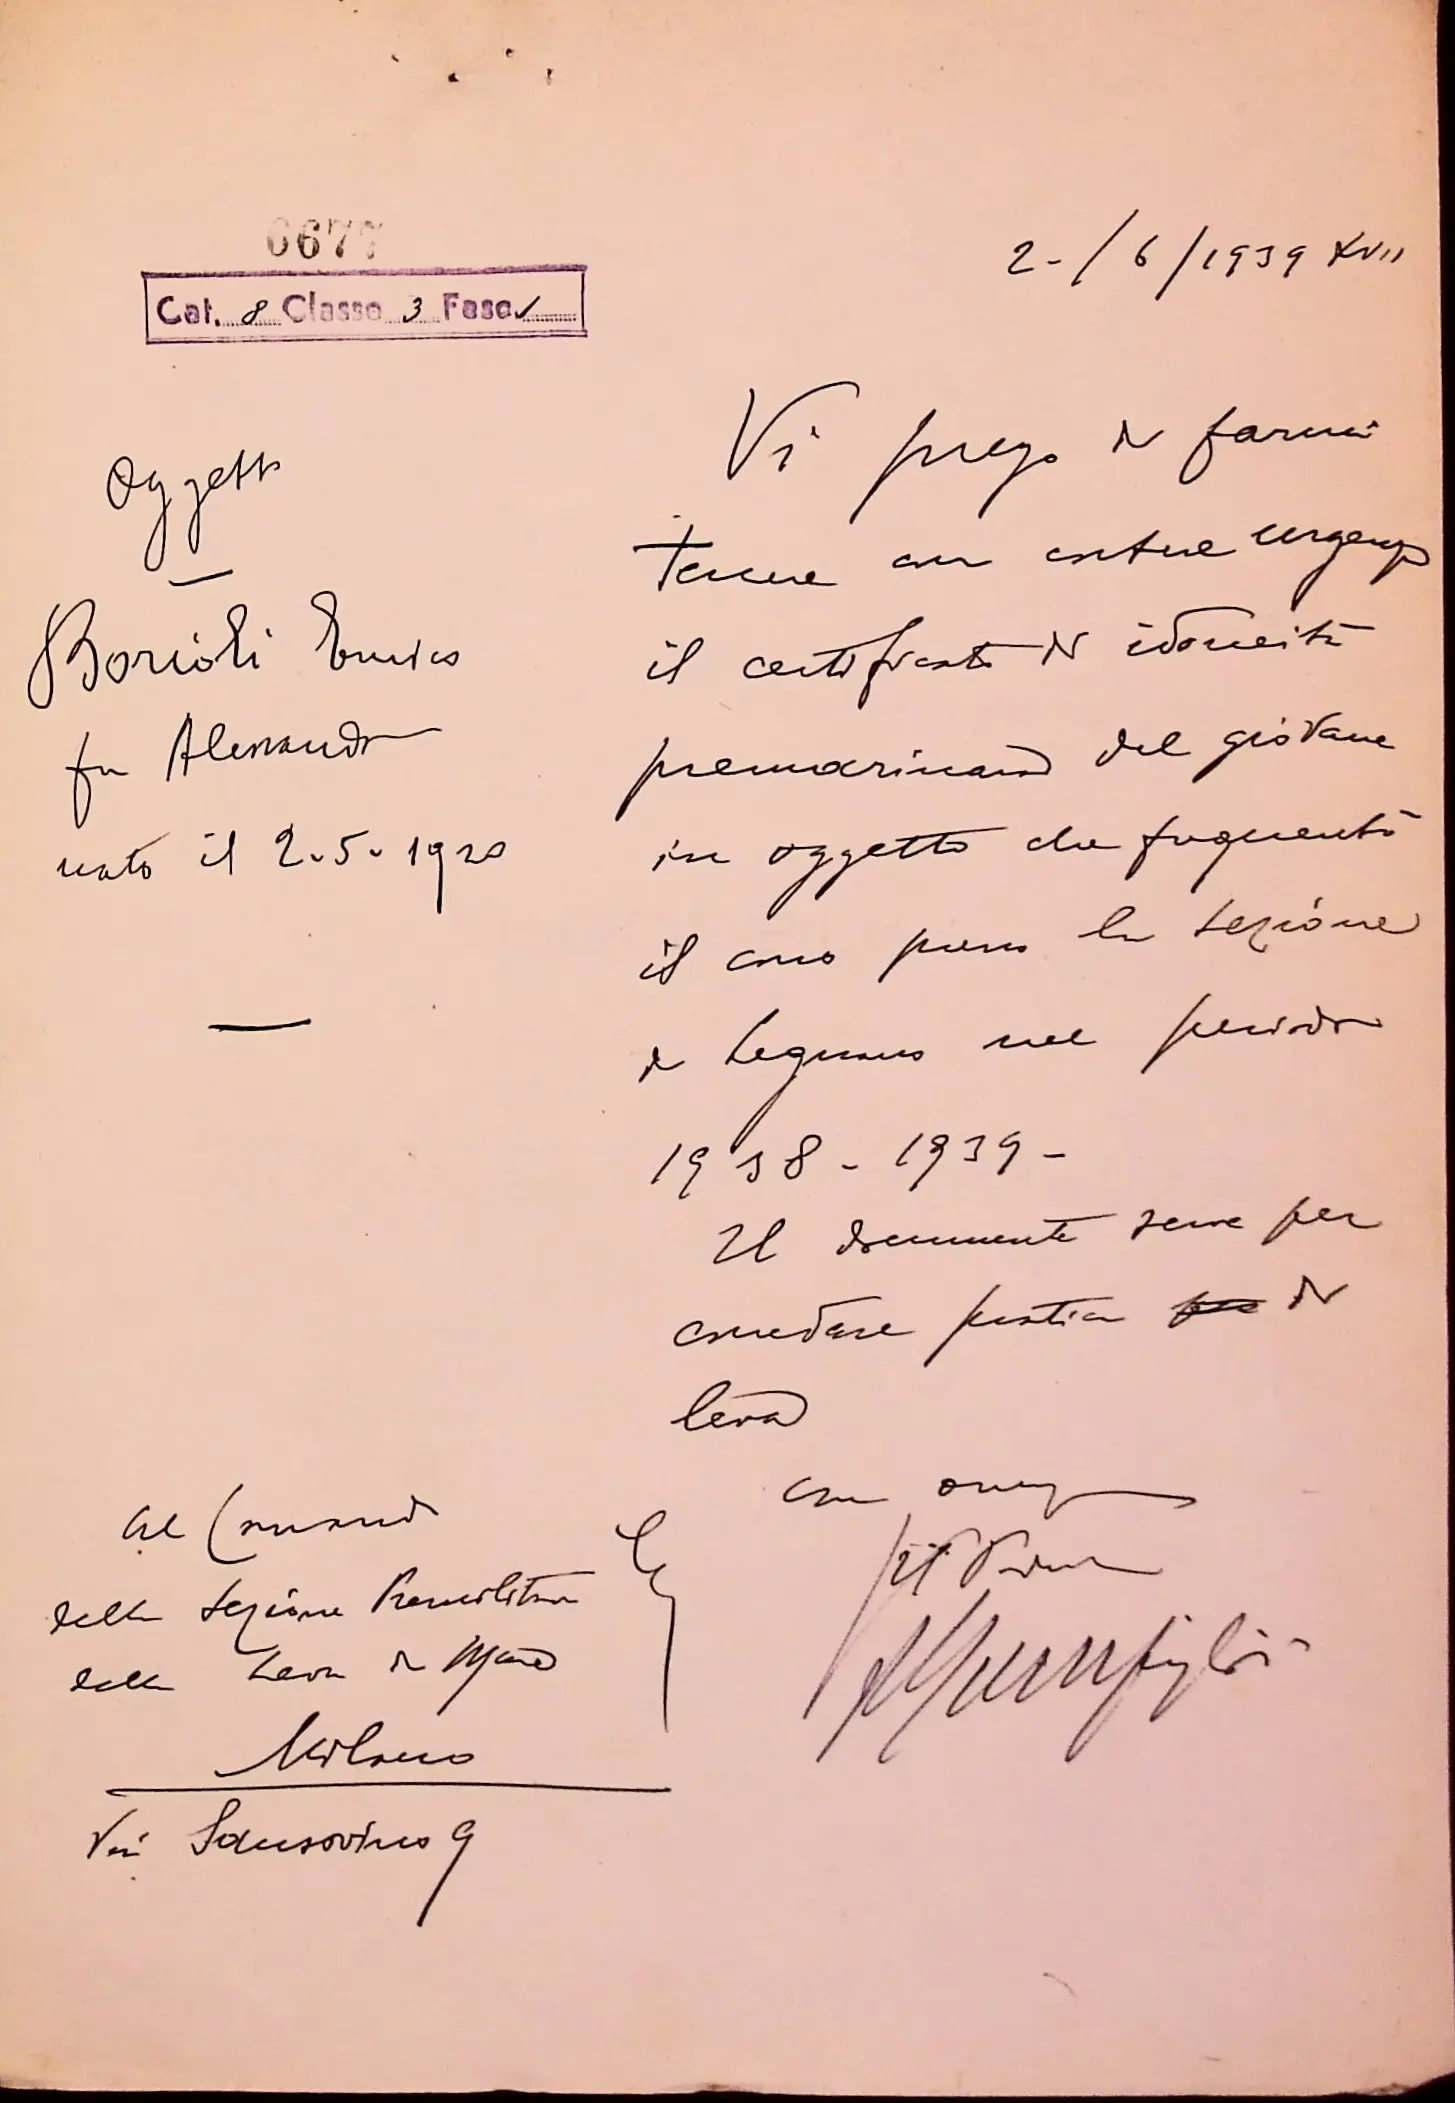 6677
Cat. 8 Classe 3 Fasc. 1
2-/6/1939 XVII
Oggetto
Borioli Enrico
fu Alessandro
nato il 2.5.1920
Vi prego di farmi
tenere con cortese urgenza
il certificato di idoneità
premarinara del giovane
in oggetto che frequentò
il corso presso la Sezione
di Legnano nel periodo
1938-1939-
Il documento serve per
corredare pratica di
leva
con
Il Podestà
Al Comando
della Sezione Premilitare
della Leva di Mare
Milano
Via Sansovino 9